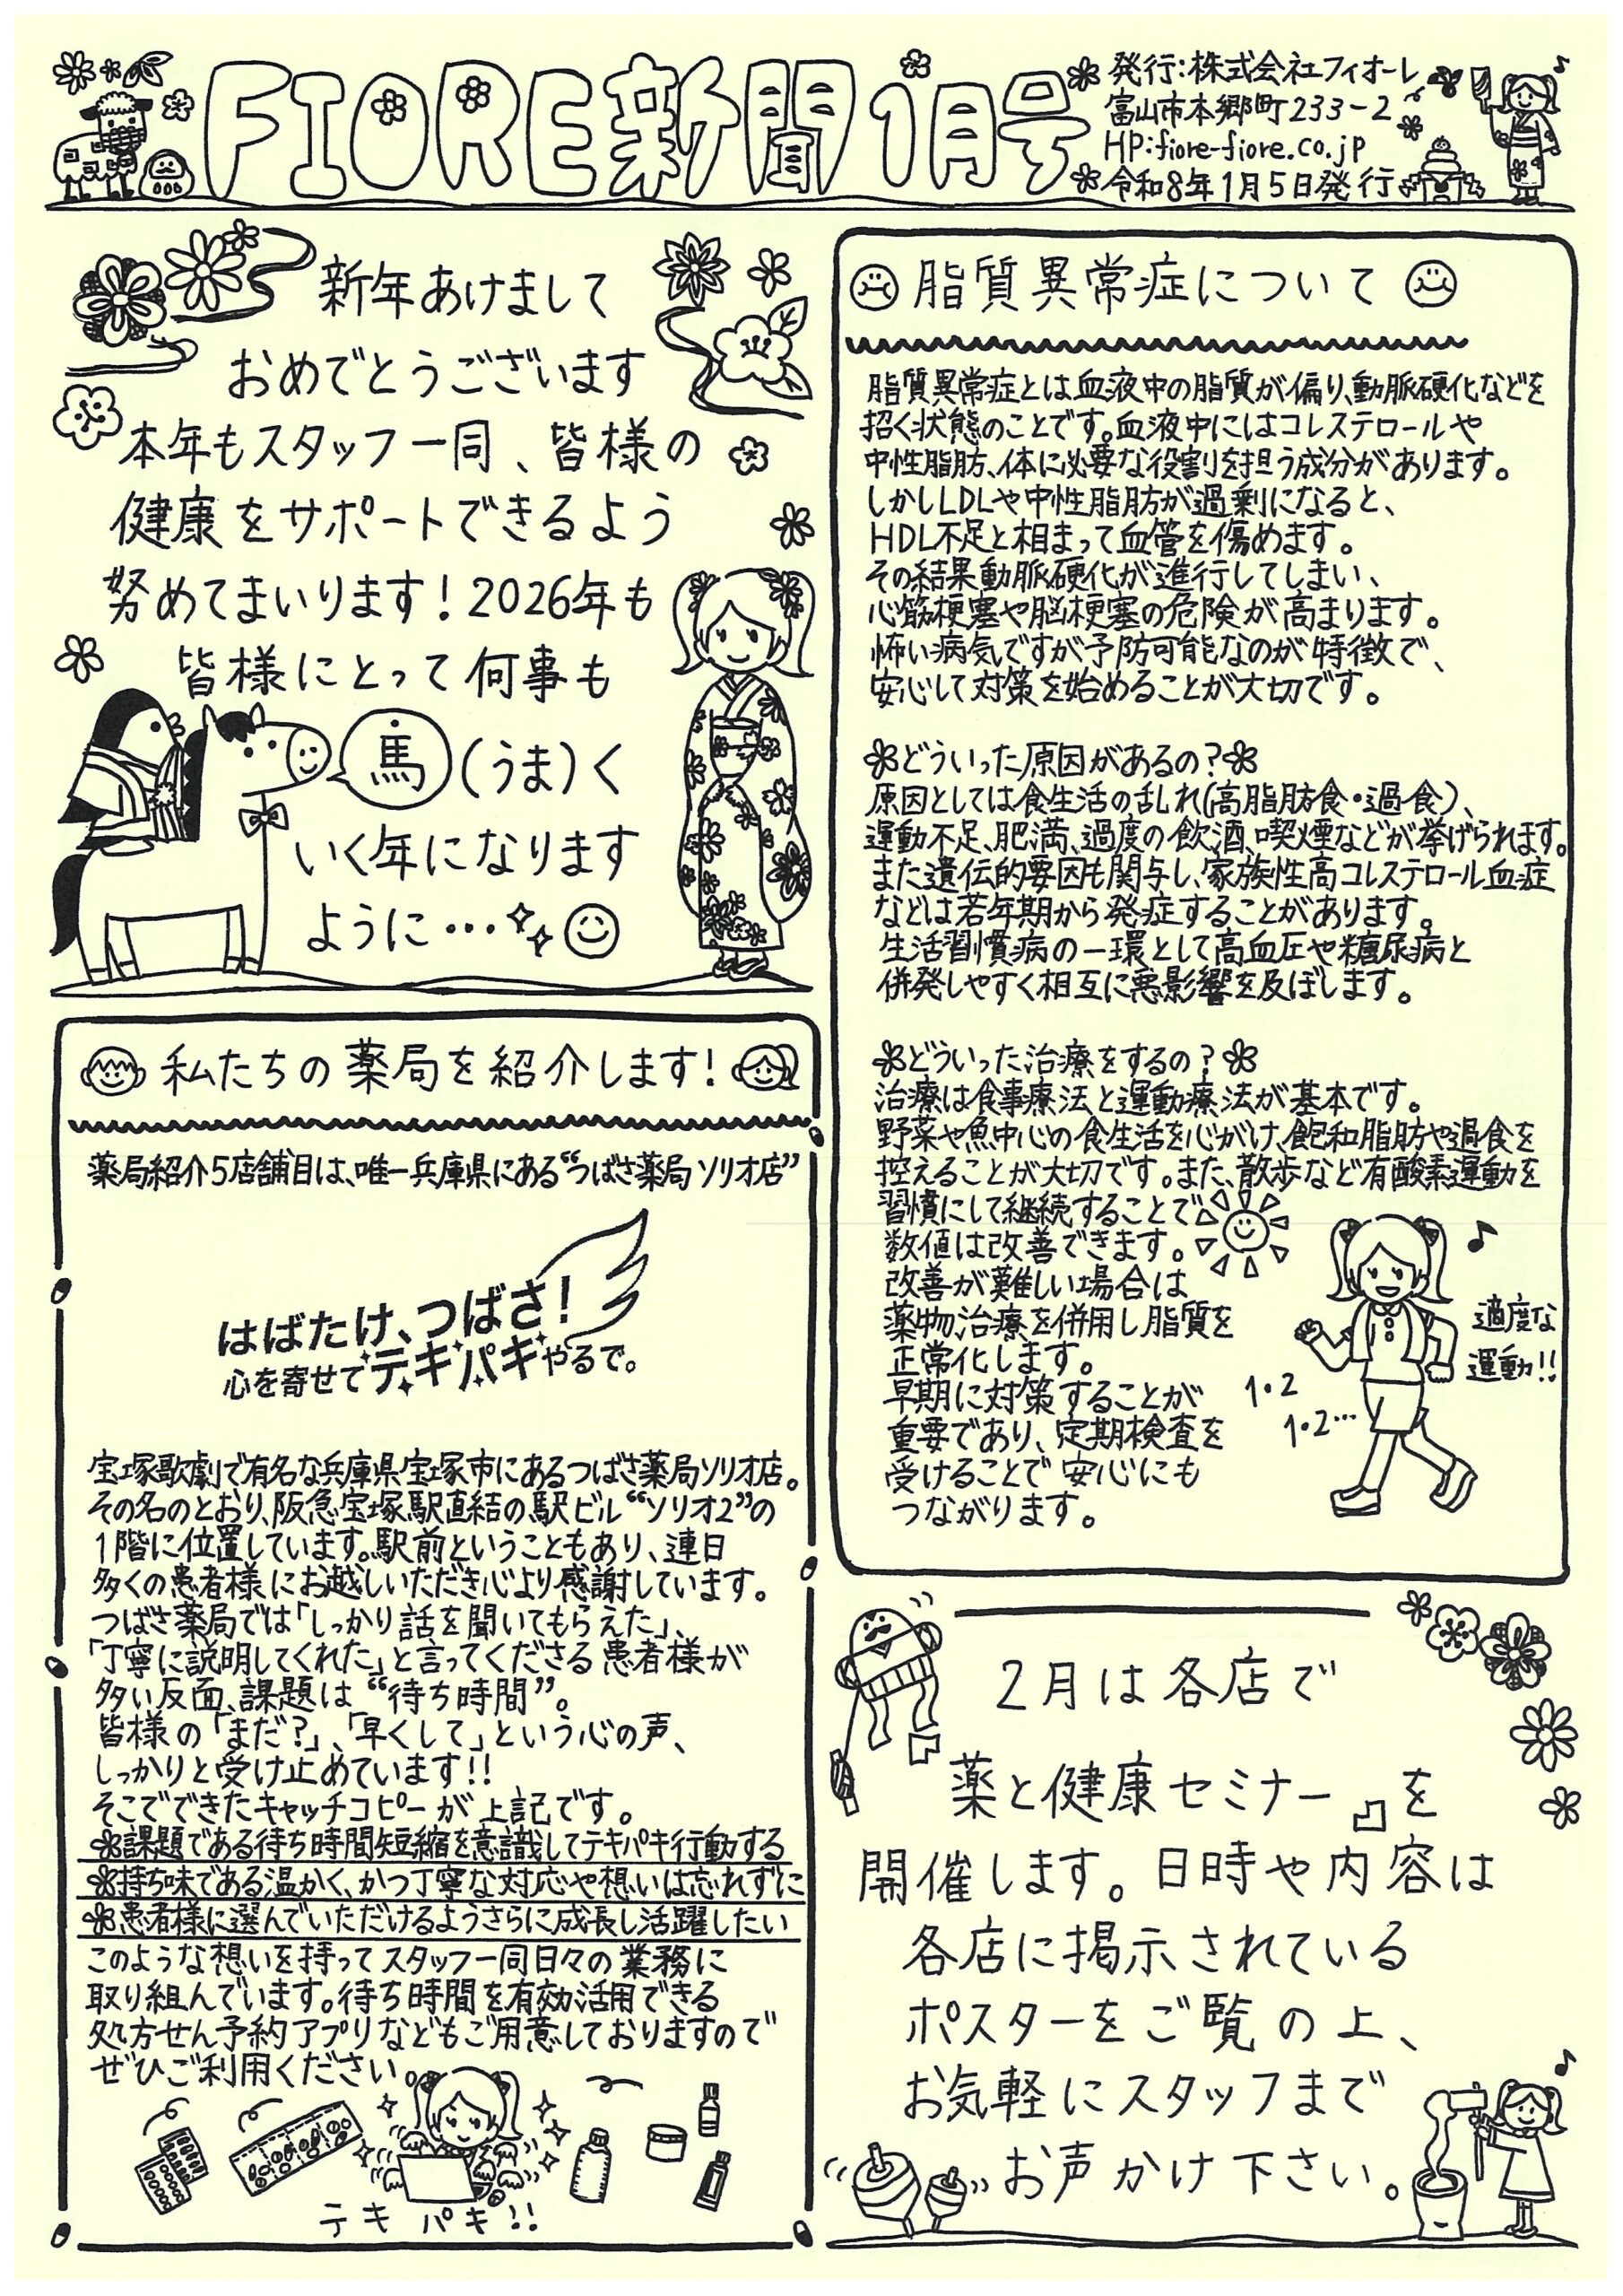 FIORE新聞 1月号
発行:株式会社フィオーレ
富山市本郷町233-2
HP:fiore-fiore.co.jp
令和8年1月5日発行
新年あけまして
おめでとうございます
本年もスタッフ一同、皆様の
健康をサポートできるよう
努めてまいります!2026年も
皆様にとって何事も
馬(うま)く
いく年になります
ように…
私たちの薬局を紹介します!
薬局紹介5店舗目は、唯一兵庫県にある“つばさ薬局 ソリオ店”
はばたけ、つばさ!
心を寄せてテキパキやるで。
宝塚歌劇で有名な兵庫県宝塚市にあるつばさ薬局ソリオ店。
その名のとおり、阪急宝塚駅直結の駅ビル“ソリオ2”の
1階に位置しています。駅前ということもあり、連日
多くの患者様にお越しいただき心より感謝しています。
つばさ薬局では「しっかり話を聞いてもらえた」、
「丁寧に説明してくれた」と言ってくださる患者様が
多い反面、課題は“待ち時間”。
皆様の「まだ?」、「早くして」という心の声、
しっかりと受け止めています!!
そこでできたキャッチコピーが上記です。
課題である待ち時間短縮を意識してテキパキ行動する
持ち味である温かく、かつ丁寧な対応や想いは忘れずに
患者様に選んでいただけるようさらに成長し活躍したい
このような想いを持ってスタッフ一同日々の業務に
取り組んでいます。待ち時間を有効活用できる
処方せん予約アプリなどもご用意しておりますので
ぜひご利用ください。
テキパキ!!
脂質異常症について
脂質異常症とは血液中の脂質が偏り、動脈硬化などを
招く状態のことです。血液中にはコレステロールや
中性脂肪、体に必要な役割を担う成分があります。
しかしLDLや中性脂肪が過剰になると、
HDL不足と相まって血管を傷めます。
その結果動脈硬化が進行してしまい、
心筋梗塞や脳梗塞の危険が高まります。
怖い病気ですが予防可能なのが特徴で、
安心して対策を始めることが大切です。
どういった原因があるの?
原因としては食生活の乱れ(高脂肪食・過食)、
運動不足、肥満、過度の飲酒、喫煙などが挙げられます。
また遺伝的要因も関与し、家族性高コレステロール血症
などは若年期から発症することがあります。
生活習慣病の一環として高血圧や糖尿病と
併発しやすく相互に悪影響を及ぼします。
どういった治療をするの?
治療は食事療法と運動療法が基本です。
野菜や魚中心の食生活を心がけ、飽和脂肪や過食を
控えることが大切です。また、散歩など有酸素運動を
習慣にして継続することで
数値は改善できます。
改善が難しい場合は
薬物治療を併用し脂質を
正常化します。
早期に対策することが
重要であり、定期検査を
受けることで安心にも
つながります。
適度な
運動!!
1・2
1・2…
2月は各店で
『薬と健康セミナー』を
開催します。日時や内容は
各店に掲示されている
ポスターをご覧の上、
お気軽にスタッフまで
お声かけ下さい。